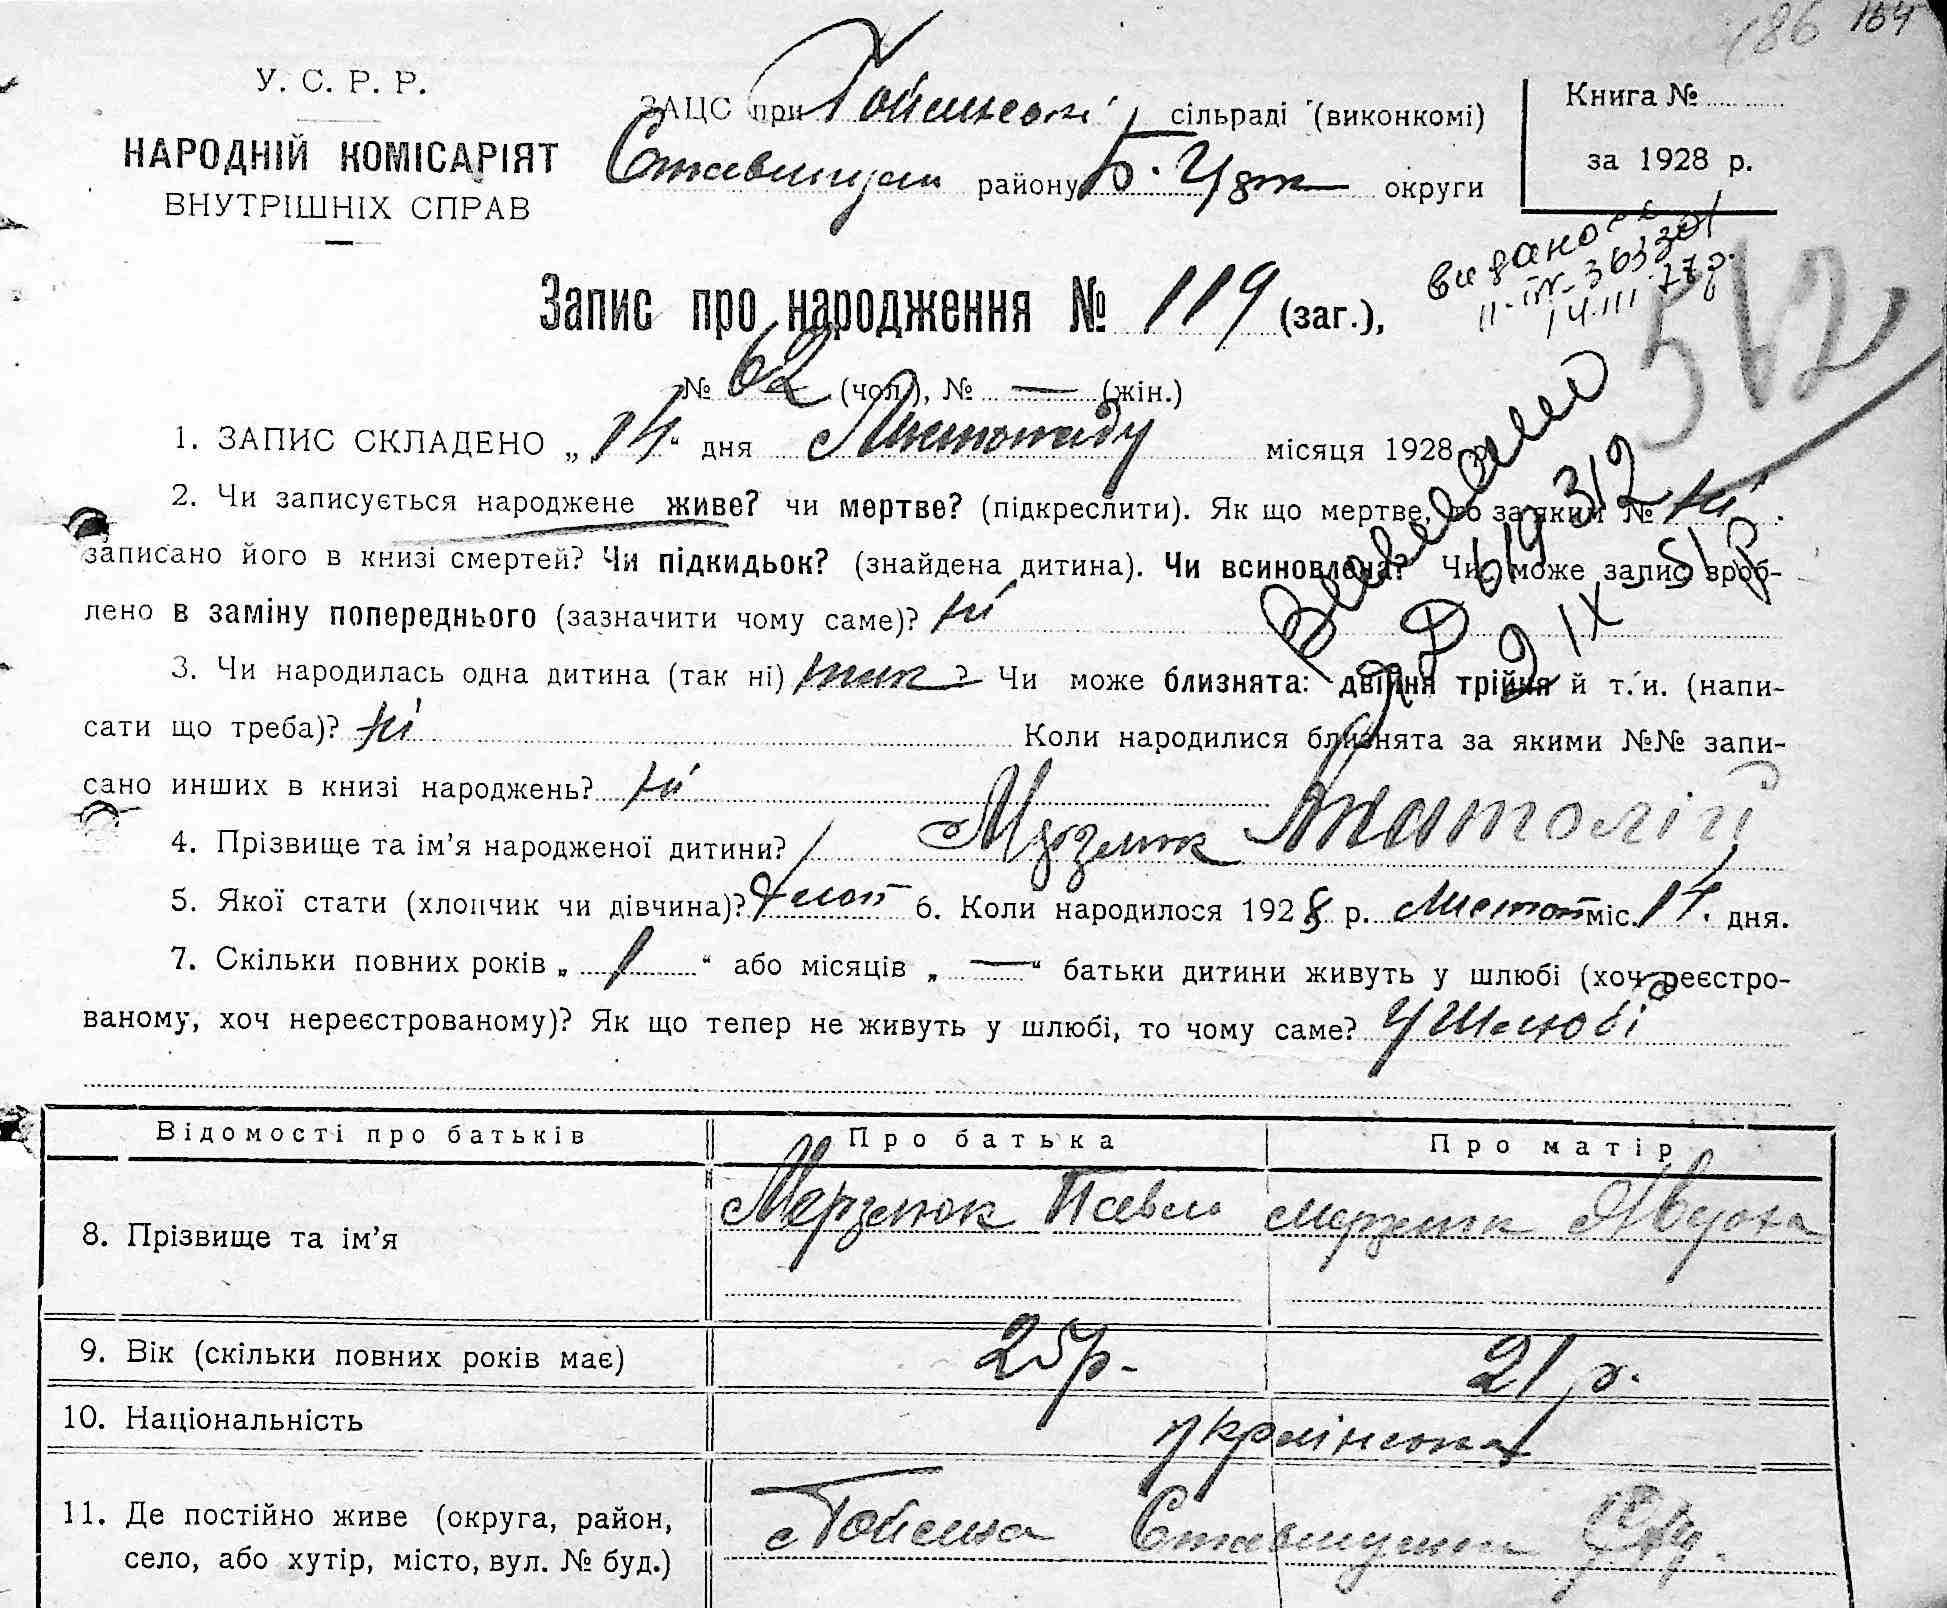 186 164
У. С. Р. Р.
НАРОДНІЙ КОМІСАРІЯТ
ВНУТРІШНІХ СПРАВ
ЗАЦС при сільраді (виконкомі)
району Б. округи
Книга №
за 1928 р.
видано
14.III 77р.
Запис про народження № 119 (заг.),
562
№ 62 (чол.), № — (жін.)
1. ЗАПИС СКЛАДЕНО „14“ дня Листопаду місяця 1928 р.
2. Чи записується народжене живе? чи мертве? (підкреслити). Як що мертве, то за яким № ні
записано його в книзі смертей? Чи підкидьок? (знайдена дитина). Чи всиновлена? Чи може запис зроб-
лено в заміну попереднього (зазначити чому саме)? ні
619312
2 IX 51 р
3. Чи народилась одна дитина (так ні) так ? Чи може близнята: двійня трійня й т. и. (напи-
сати що треба)? ні Коли народилися близнята за якими №№ запи-
сано инших в книзі народжень? ні
4. Прізвище та ім’я народженої дитини? Мерзлюк Анатолій
5. Якої стати (хлопчик чи дівчина)? хлоп 6. Коли народилося 1928 р. Листоп міс. 14. дня.
7. Скільки повних років „ 1 “ або місяців „ — “ батьки дитини живуть у шлюбі (хоч реєстро-
ваному, хоч нереєстрованому)? Як що тепер не живуть у шлюбі, то чому саме? У шлюбі
Відомості про батьків Про батька Про матір
8. Прізвище та ім’я Мерзлюк Павло Мерзлюк
9. Вік (скільки повних років має) 25р. 21 р.
10. Національність українська
11. Де постійно живе (округа, район,
село, або хутір, місто, вул. № буд.)